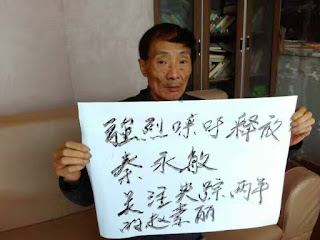 强烈呼吁释放
秦永敏
关注失踪两年
的赵素丽